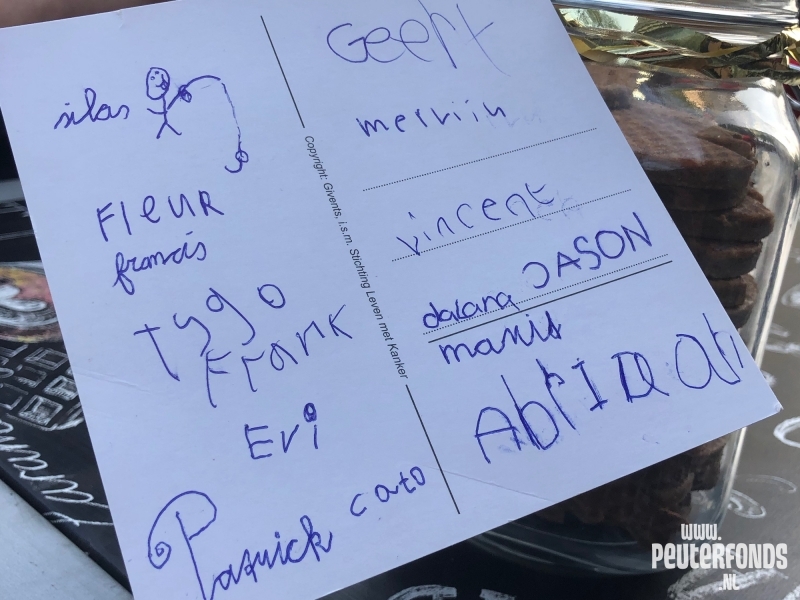 silas
Fleur
francis
tygo
Frank
Evi
Patrick
cato
Copyright: Givents, i.s.m. Stichting Leven met Kanker
Geert
merviin
vincent
JASON
daiana
manil
www.
PEUTERFONDS
.NL